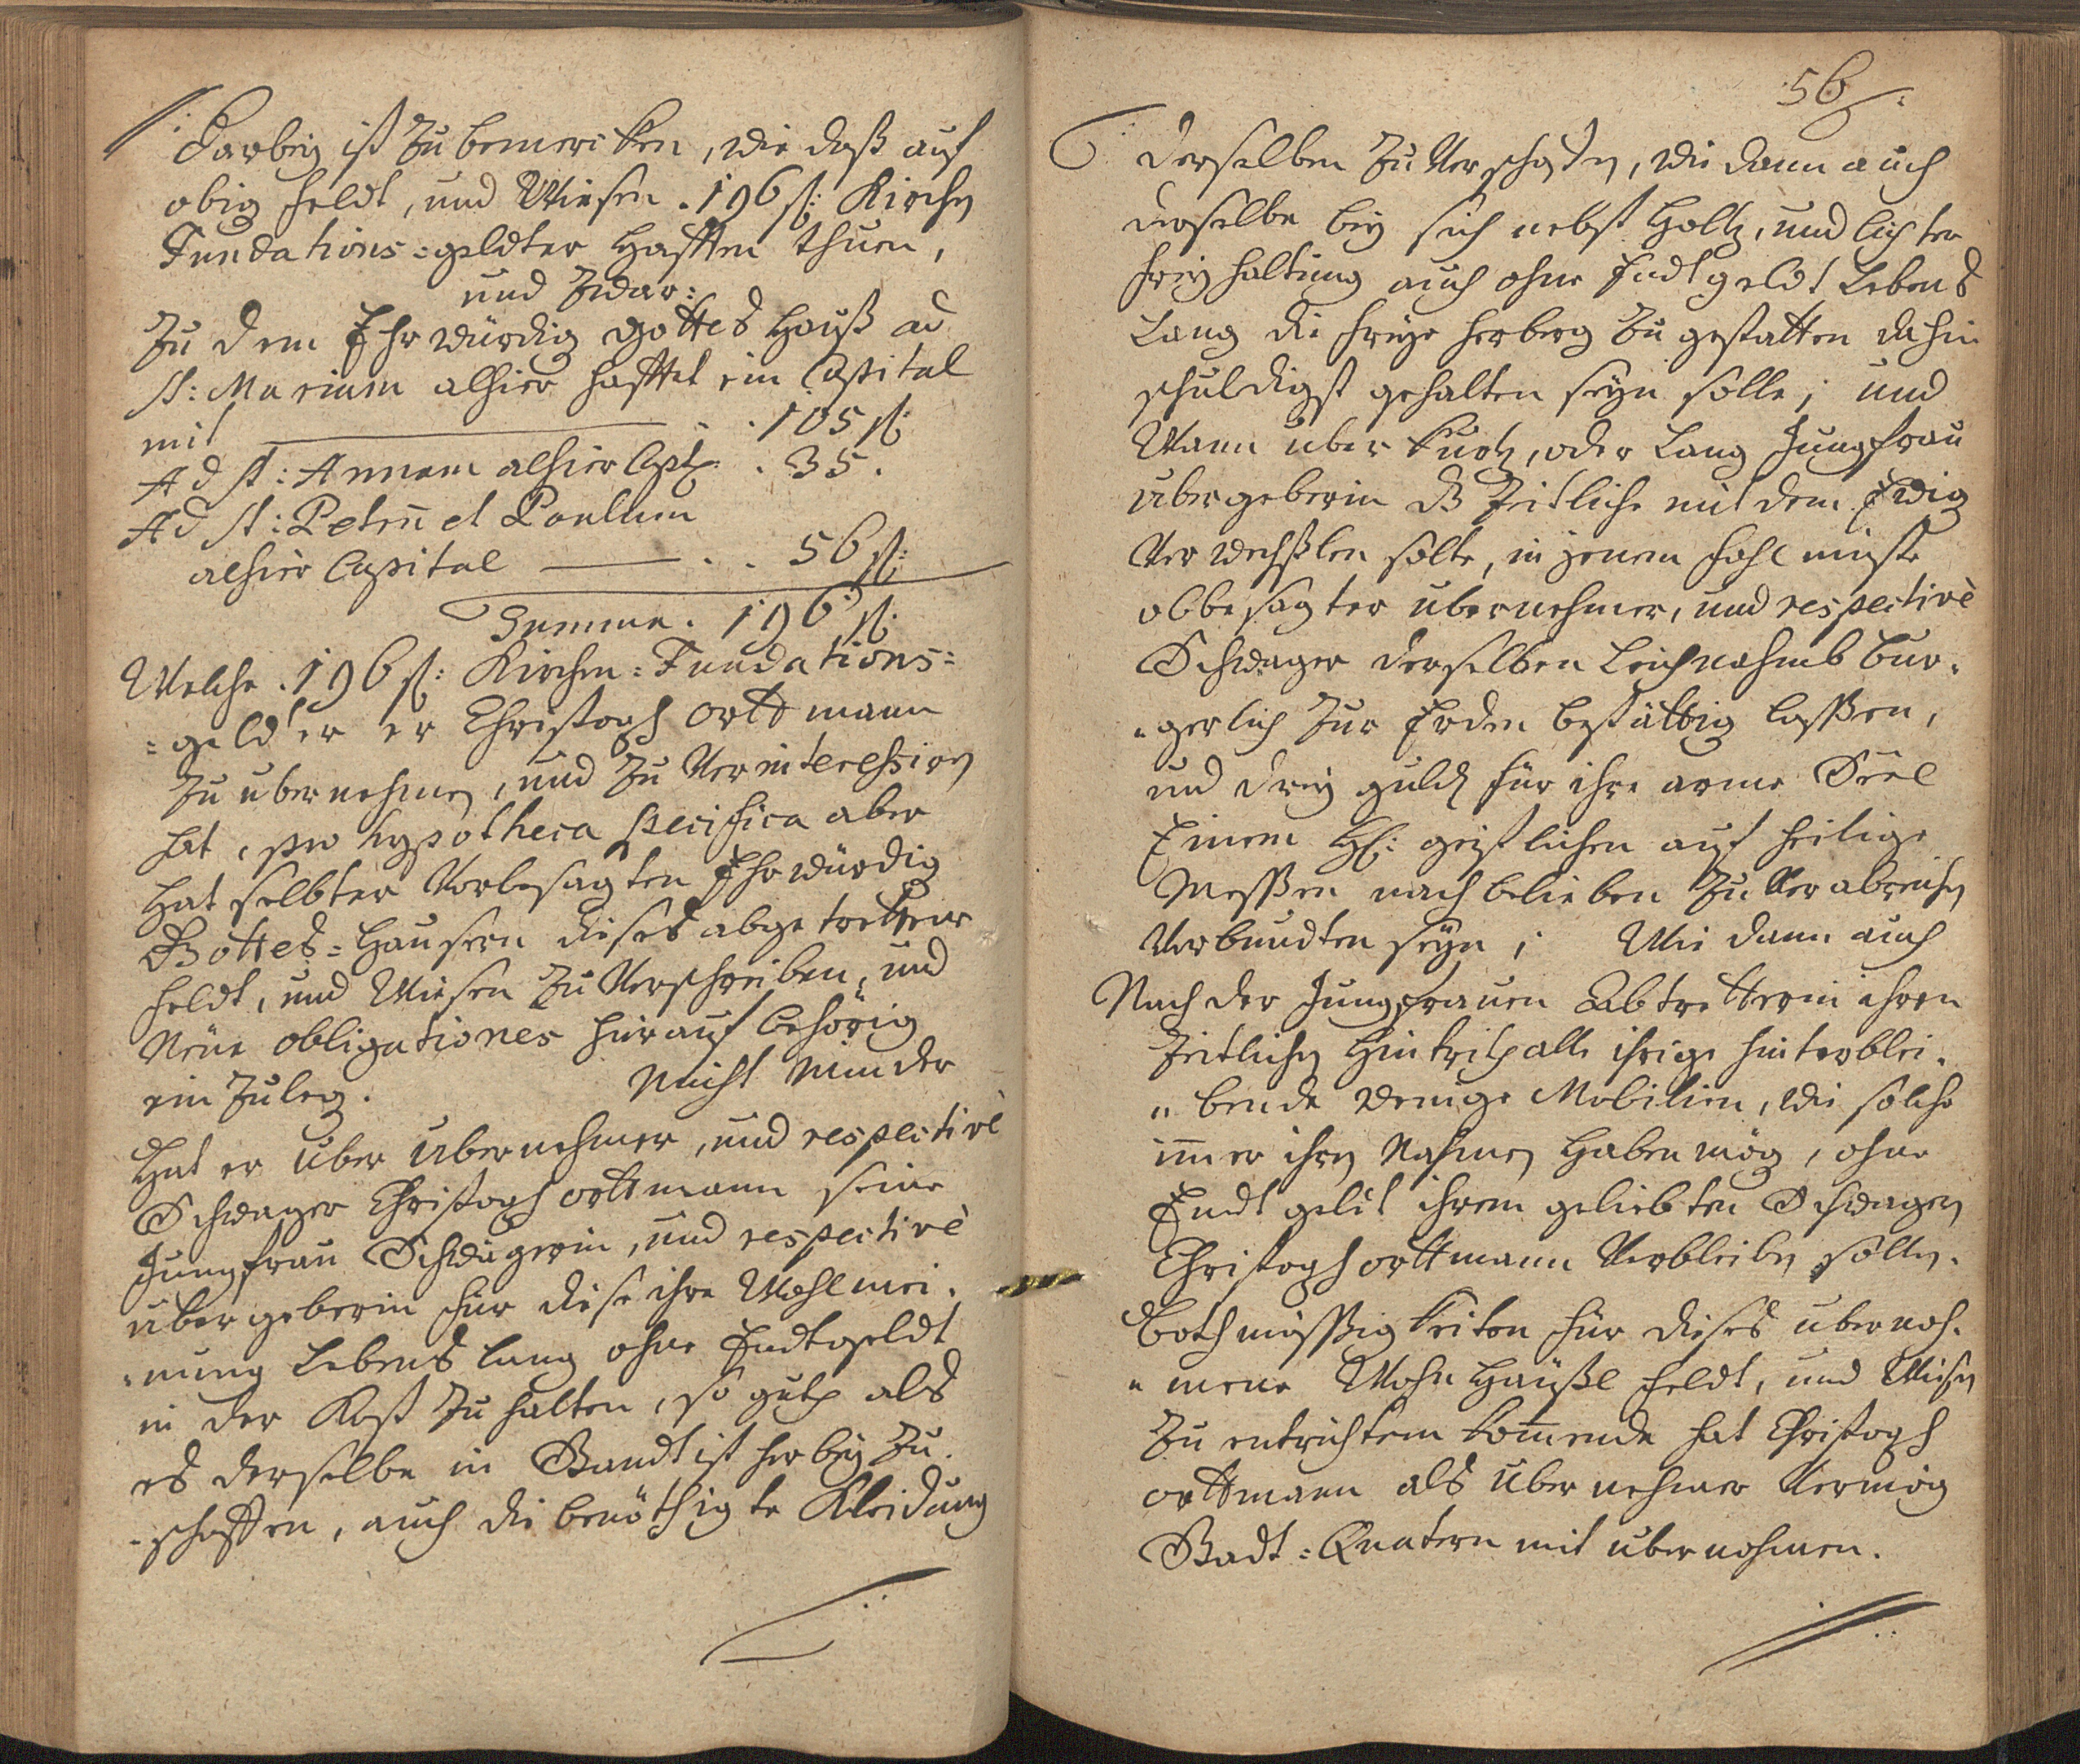 Darbey ist Zu bemercken, wie daß auf
obig feldt, und Wiesen. 196 fl: Kirchen
Fundations=geldter Hafften thuen,
und Zwar:
Zu dem Ehrwürdig Gottes Hauß ad
St: Mariam alhier hafftet ein Capital
mit . . 105 fl:
Ad St: Annam alhier Capl: . 35.
Ad St: Petrum̄ et Paulum
alhier Capital . . 56 fl:
Summa. 196 fl:
Welche. 196 fl: Kirchen=Fundations=
=gelder er Christoph Orttmann
Zu übernehmen, und Zu Verinteressiren
hat, pro hypotheca specifica aber
Hat selbter Vorbesagten Ehrwürdig
Gottes=Hausern dieses abgetrettene
feldt, und Wiesen Zu Verschreiben, und
Neüe obligationes hierauf behörig
ein Zuleg. Nicht Minder
Hat er über übernehmer, und respectivè
Schwager Christoph Orttmann seine
Jungfrau Schwägerin, und respectivè
übergeberin für diese ihre Wohlmei=
=nung Lebens lang ohne Endtgeldt
in der Kost Zu halten, so guth als
es derselbe in Standt ist herbey Zu
=schaffen, auch die benöthigte Kleidung
56
derselben Zu Verschaffen, wie dann auch
derselbe bey sich nebst Holtz, und lichter
freyhaltung auch ohne Endtgeldt Lebens
Lang die freye herberg Zu gestatten dahin
schuldigst gehalten seyn solle; und
Wann über kurtz, oder Lang Jungfrau
übergeberin dß Zeitliche mit dem Ewig
Verwechslen solte, in jenem fahl müste
obbesagter übernehmer, und respectivè
Schwager derselben Leichnahmb bur=
=gerlich Zur Erden bestättig lassen,
und drey guld für ihre arme Seel
Einem H: geistlichen auf heilige
Messen nach belieben Zu Verabreichen
Verbundten seyn; Wie dann auch
Nach der Jungfrauen Abtretterin ihren
Zeitlichen Hintritt alle ihrige hinterblei=
=bende wenige Mobilien, wie solche
im̄er ihren Nahmen Haben mög, ohne
Endtgeldt ihrem geliebten Schwagern
Christoph Orttmann Verbleiben sollen.
Bothmässigkeiten für dieses übernoh=
=mene Wohn Häußl feldt, und Wiesen
Zu entrichten kom̄ende hat Christoph
Orttmann als über nehmer Vermög
Stadt=Quatern mit übernohmen.